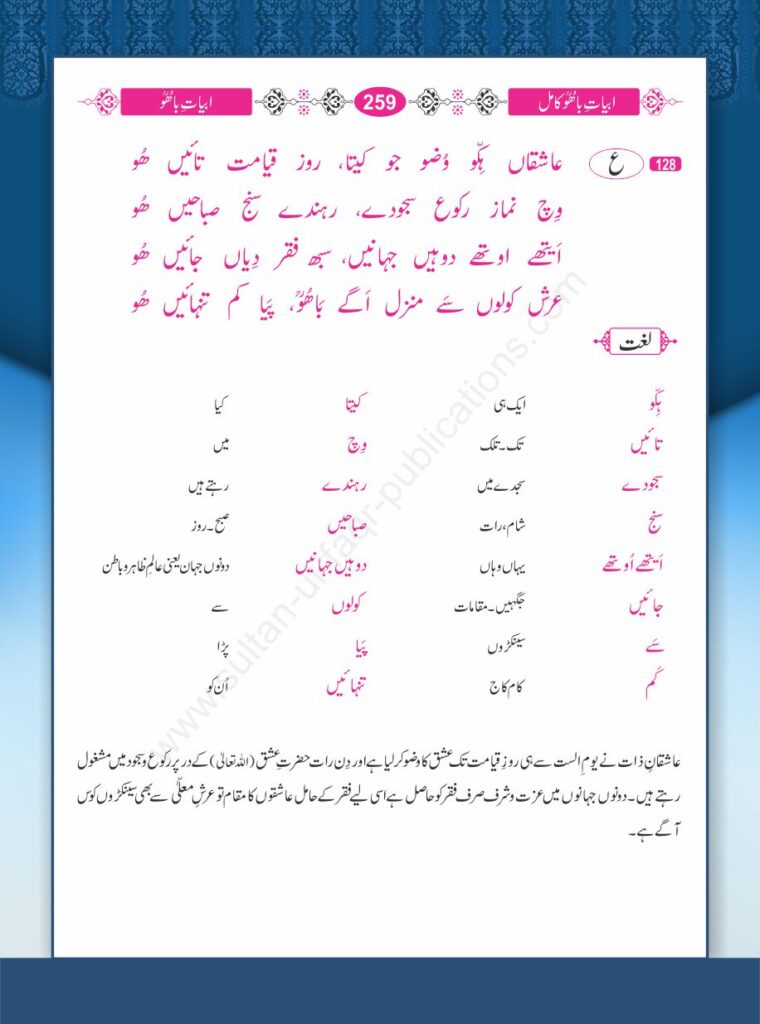 ابیاتِ باھُوؒ کامل 259 ابیاتِ باھُوؒ
128 ع عاشقاں ہِکّو وُضو جو کیتا، روز قیامت تائیں ھُو
وِچ نماز رکوع سجودے، رہندے سنج صباحیں ھُو
اَیتھے اوتھے دوہیں جہانیں، سبھ فقر دِیاں جائیں ھُو
عرش کولوں سَے منزل اَگے بَاھُوؒ، پَیا کم تنہائیں ھُو
لغت
ہِکّو ایک ہی کیتا کیا
تائیں تک۔تلک وِچ میں
سجودے سجدے میں رہندے رہتے ہیں
سنج شام، رات صباحیں صبح۔روز
اَیتھے اُوتھے یہاں وہاں دوہیں جہانیں دونوں جہان یعنی عالمِ ظاہر و باطن
جائیں جگہیں۔مقامات کولوں سے
سَے سینکڑوں پَیا پڑا
کَم کام کاج تنہائیں اُن کو
عاشقانِ ذات نے یومِ الست سے ہی روزِ قیامت تک عشق کا وضو کر لیا ہے اور دِن رات حضرتِ عشق (اللہ تعالیٰ) کے در پر رکوع و سجود میں مشغول
رہتے ہیں۔ دونوں جہانوں میں عزت و شرف صرف فقر کو حاصل ہے اسی لیے فقر کے حامل عاشقوں کا مقام تو عرشِ معلّٰی سے بھی سینکڑوں کوس
آگے ہے۔
www.sultan-ul-faqr-publications.com